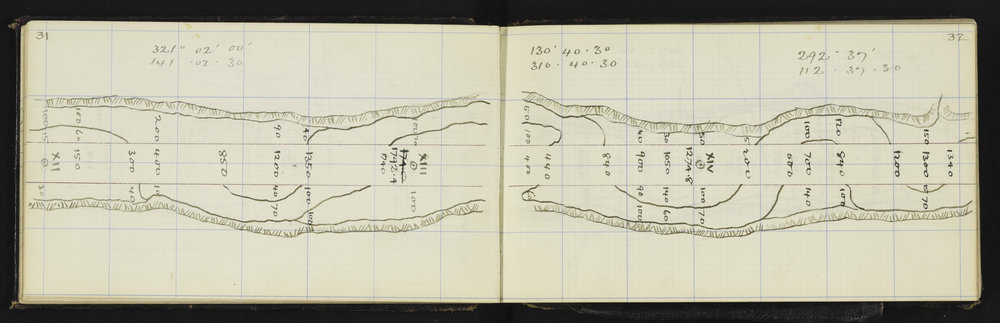 31
321° 02' 00"
141 · 02 · 30
XII
150
300
400
850
1200
1350
1792.4
1740
XIII
200
90
40
40
70
100
100
100
32
130° 40 · 30
310 · 40 · 30
292° 37'
112 · 37 · 30
50
100
400
440
840
40
900
90
100
50
1050
140
60
50
XIV
1274.8
100
70
5
200
100
600
700
140
170
840
100
1200
150
1300
70
1340